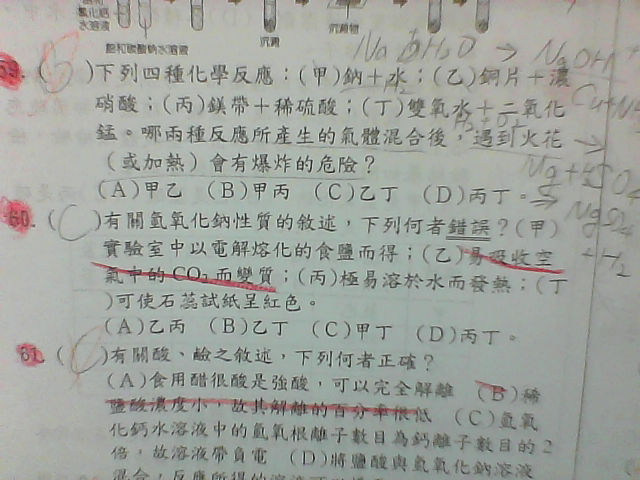 氯化鈣
水溶液
飽和碳酸鈉水溶液
沉澱
沉澱物
Na + H2O → NaOH +
59. ( )下列四種化學反應：(甲)鈉＋水；(乙)銅片＋濃
硝酸；(丙)鎂帶＋稀硫酸；(丁)雙氧水＋二氧化
錳。哪兩種反應所產生的氣體混合後，遇到火花
（或加熱）會有爆炸的危險？
(A)甲乙 (B)甲丙 (C)乙丁 (D)丙丁。
Mg + H2SO4
→ MgSO4
+ H2
60. (C)有關氫氧化鈉性質的敘述，下列何者錯誤？(甲)
實驗室中以電解熔化的食鹽而得；(乙)易吸收空
氣中的CO2而變質；(丙)極易溶於水而發熱；(丁
)可使石蕊試紙呈紅色。
(A)乙丙 (B)乙丁 (C)甲丁 (D)丙丁。
61. ( )有關酸、鹼之敘述，下列何者正確？
(A)食用醋很酸是強酸，可以完全解離 (B)稀
鹽酸濃度小，故其解離的百分率很低 (C)氫氧
化鈣水溶液中的氫氧根離子數目為鈣離子數目的2
倍，故溶液帶負電 (D)將鹽酸與氫氧化鈉溶液
混合，反應所得的溶液